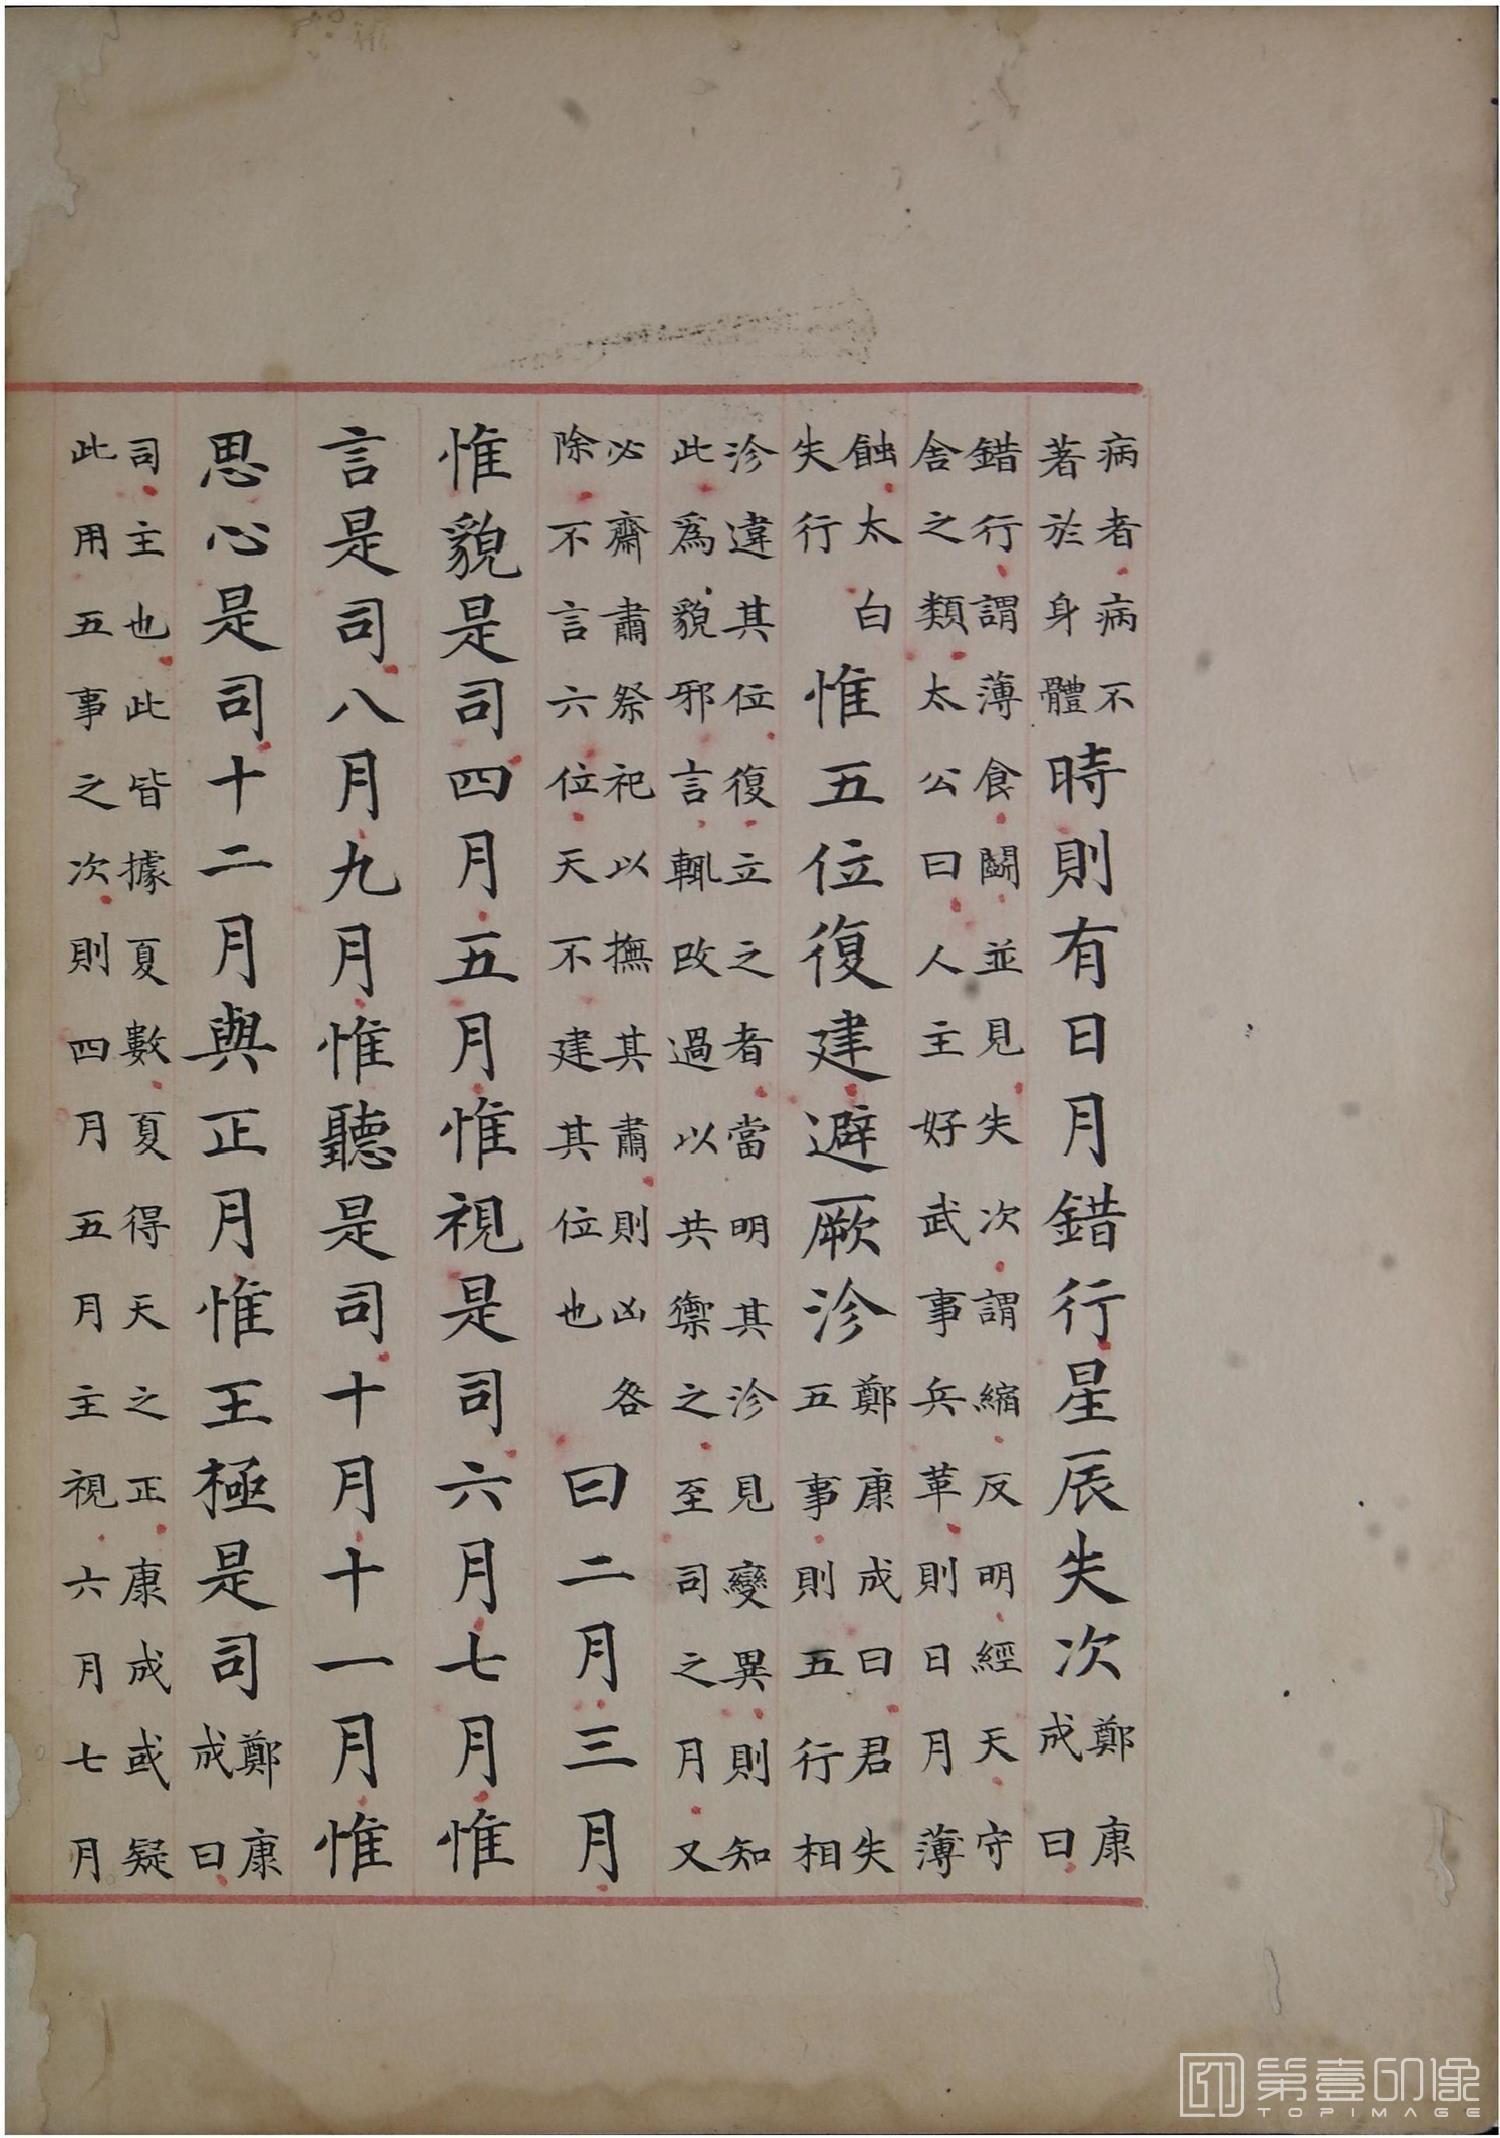 病者病不
著於身體
時則有日月錯行星辰失次
鄭康
成曰
錯行謂薄食鬭並見失次謂縮反明經天守
舍之類太公曰人主好武事兵革則日月薄
蝕太白
失行
惟五位復建避厥沴
鄭康成曰君失
五事則五行相
沴違其位復立之者當明其沴見變異則知
此爲貌邪言輒改過以共禦之至司之月又
必齋肅祭祀以撫其肅則凶咎
除不言六位天不建其位也
曰二月三月
惟貌是司四月五月惟視是司六月七月惟
言是司八月九月惟聽是司十月十一月惟
思心是司十二月與正月惟王極是司
鄭康
成曰
司主也此皆據夏數夏得天之正康成或疑
此用五事之次則四月五月主視六月七月
第壹印像
TOPIMAGE